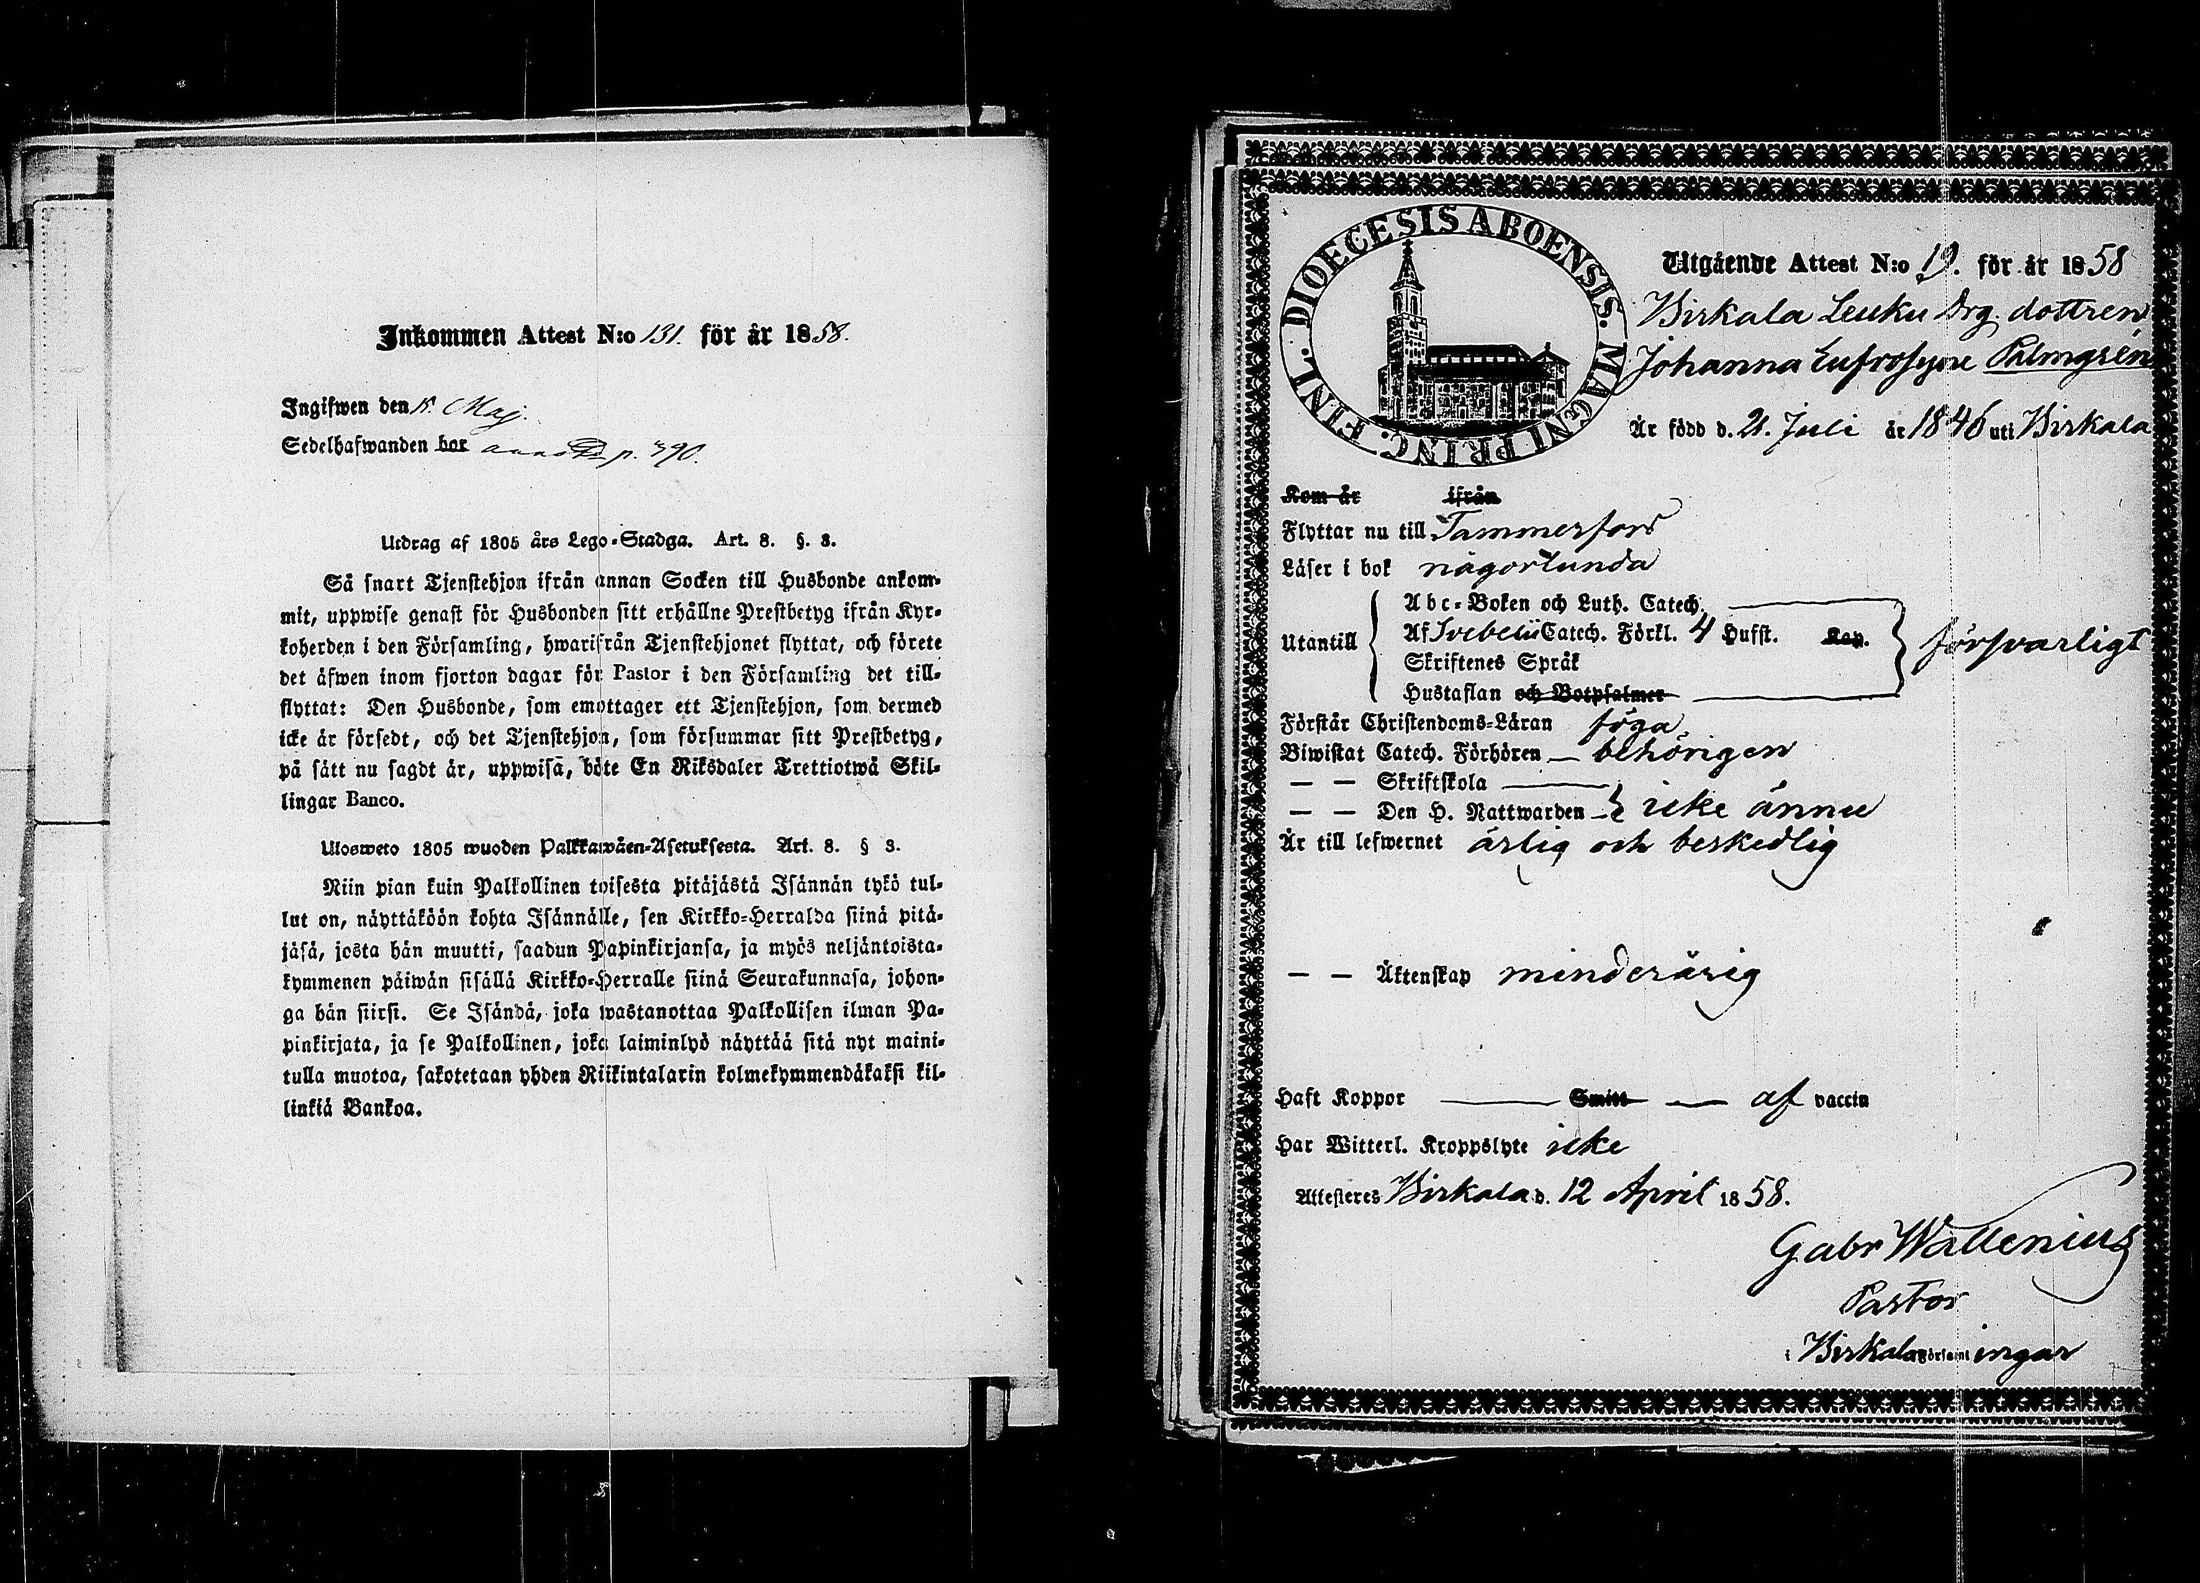 Inkommen Attest N:o 131. för år 1858.
Ingifwen den Maj.
Sedelhafwanden bor p. 390.
Utdrag af 1805 års Lego-Stadga. Art. 8. §. 3.
Så snart Tjenstehjon ifrån annan Socken till Husbonde ankom-
mit, uppwise genast för Husbonden sitt erhållne Prestbetyg ifrån Kyr-
koherden i den Församling, hwarifrån Tjenstehjonet flyttat, och förete
det äfwen inom fjorton dagar för Pastor i den Församling det till-
flyttat: Den Husbonde, som emottager ett Tjenstehjon, som dermed
icke är försedt, och det Tjenstehjon, som försummar sitt Prestbetyg,
på sätt nu sagdt är, uppwisa, böte En Riksdaler Trettiotwå Skil-
lingar Banco.
Ulosweto 1805 wuoden Palkkawäen-Asetuksesta. Art. 8. § 3.
Niin pian kuin Palkollinen toisesta pitäjästä Isännän tykö tul-
lut on, näyttäköön kohta Isännälle, sen Kirkko-Herralda siinä pitä-
jäsä, josta hän muutti, saadun Papinkirjansa, ja myös neljäntoista-
kymmenen päiwän sisällä Kirkko-Herralle siinä Seurakunnasa, johon-
ga hän siirsi. Se Isändä, joka wastanottaa Palkollisen ilman Pa-
pinkirjata, ja se Palkollinen, joka laiminlyö näyttää sitä nyt maini-
tulla muotoa, sakotetaan yhden Riikintalarin kolmekymmendäkaksi kil-
linkiä Bankoa.
DIOECESIS ABOENSIS. MAGNI PRINC. FINL.
Utgående Attest N:o 19. för år 1858
Birkala Leuku Drg. dottren
Johanna Eufrosyne Palmgrén
Är född d. 21. Juli år 1846 uti Birkala
Kom år ifrån
Flyttar nu till Tammerfors
Läser i bok någorlunda
Utantill
Abc-Boken och Luth. Catech.
Af Svebelii Catech. Förkl. 4 Hufst. Kap.
Skriftenes Språk
Hustaflan och Botpsalmer
försvarligt
Förstår Christendoms-Läran föga
Biwistat Catech. Förhören — behörigen
— — Skriftskola
— — Den H. Nattwarden — icke ännu
Är till lefwernet ärlig och beskedlig
— — Äktenskap minderårig
Haft Koppor — Smitt — af vaccin
Har Witterl. Kroppslyte icke
Attesteres Birkala d. 12 April 1858.
Gabr Wallenius
Pastor
i Birkala Församl ingar